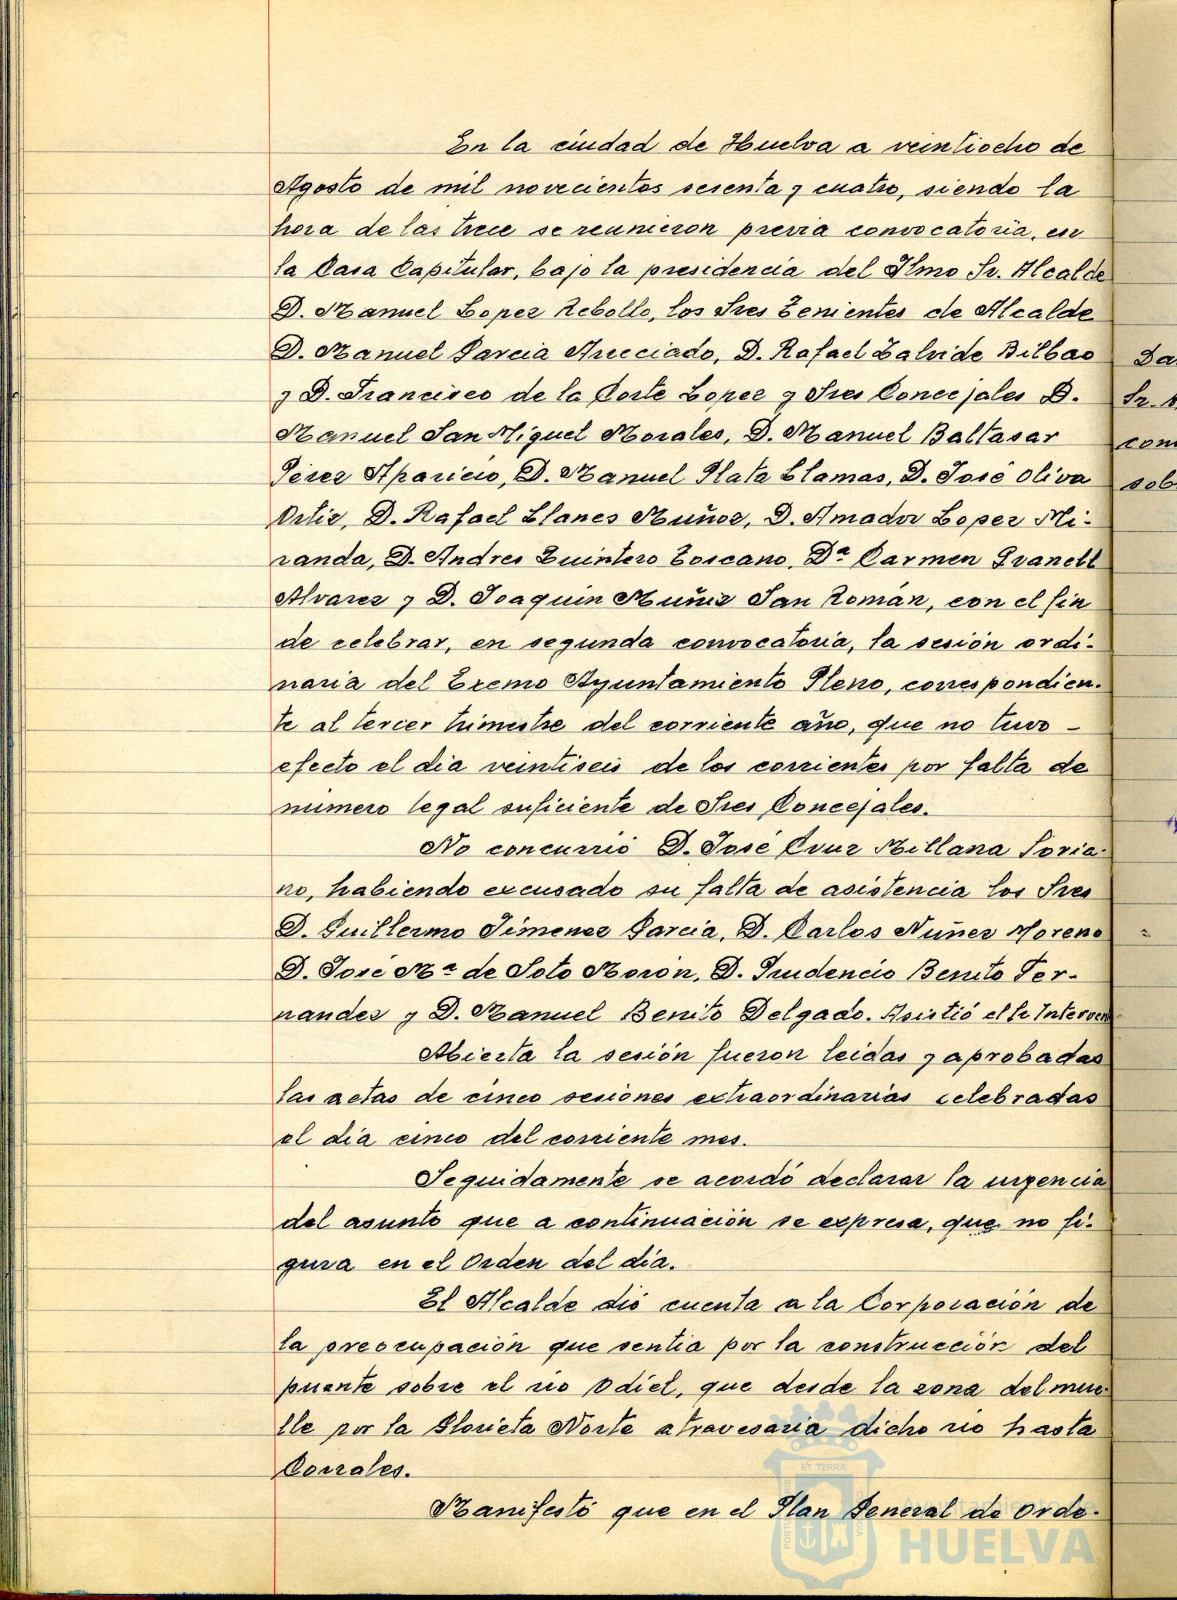 En la ciudad de Huelva a veintiocho de
Agosto de mil novecientos sesenta y cuatro, siendo la
hora de las trece se reunieron previa convocatoria, en
la Casa Capitular, bajo la presidencia del Ilmo Sr. Alcalde
D. Manuel Lopez Rebollo, los Sres Tenientes de Alcalde
D. Manuel Garcia Arreciado, D. Rafael Zalvide Bilbao
y D. Francisco de la Corte Lopez y Sres Concejales D.
Manuel San Miguel Morales, D. Manuel Baltasar
Pérez Aparicio, D. Manuel Plata Llamas, D. José Oliva
Ortiz, D. Rafael Llanes Muñoz, D. Amador Lopez Mi-
randa, D. Andres Quintero Toscano, Dª Carmen Granell
Alvarez y D. Joaquin Muñiz San Román, con el fin
de celebrar, en segunda convocatoria, la sesión ordi-
naria del Excmo Ayuntamiento Pleno, correspondien-
te al tercer trimestre del corriente año, que no tuvo -
efecto el dia veintiseis de los corrientes por falta de
número legal suficiente de Sres Concejales.
No concurrió D. José Cruz Millana Soria-
no, habiendo excusado su falta de asistencia los Sres
D. Guillermo Jimenez Garcia, D. Carlos Nuñez Moreno
D. José Mª de Soto Morón, D. Prudencio Benito Fer-
nandez y D. Manuel Benito Delgado. Asistió el Sr Interven
Abierta la sesión fueron leidas y aprobadas
las actas de cinco sesiones extraordinarias celebradas
el día cinco del corriente mes.
Seguidamente se acordó declarar la urgencia
del asunto que a continuación se expresa, que no fi-
gura en el Orden del día.
El Alcalde dió cuenta a la Corporación de
la preocupación que sentia por la construcción del
puente sobre el rio Odiel, que desde la zona del mue-
lle por la Glorieta Norte atravesaria dicho rio hasta
Corrales.
Manifestó que en el Plan General de Orde-
Da
Sr.
con
sob
Ayuntamiento de
HUELVA